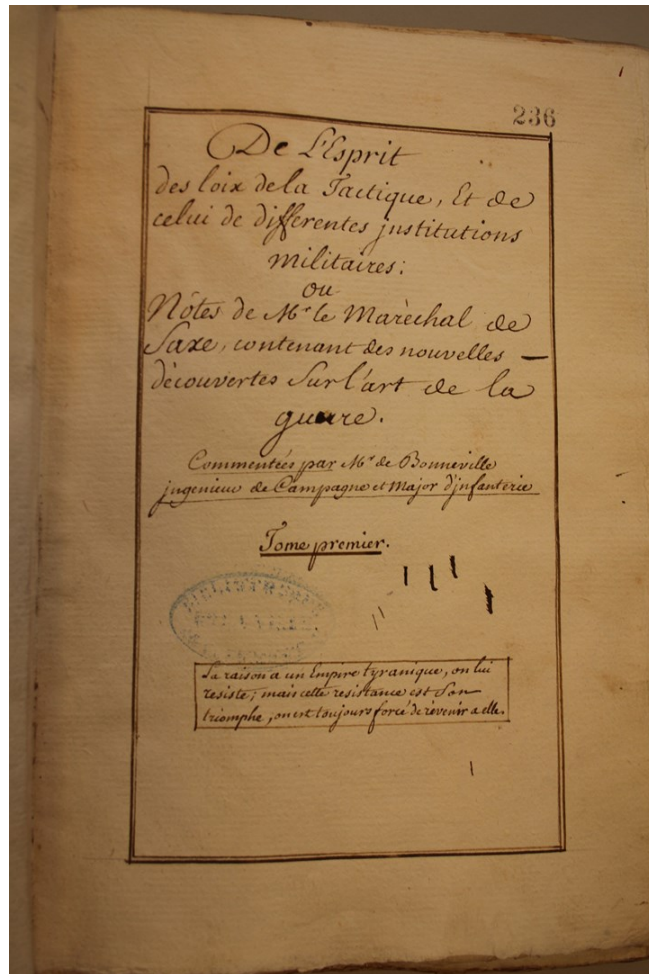 236
De L'Esprit
des loix dela Tactique, Et de
celui de differentes jnstitutions
militaires;
ou
Nôtes de Mr le Marèchal de
Saxe, contenant des nouvelles —
dècouvertes Sur l'art de la
guerre.
Commentées par Mr de Bonneville
jngenieur de Campagne et Major d'jnfanterie
Tome premier.
La raison a un Empire tyranique, on lui
resiste; mais cette resistance est Son
triomphe, on est toujours forcé de rèvenir a elle.